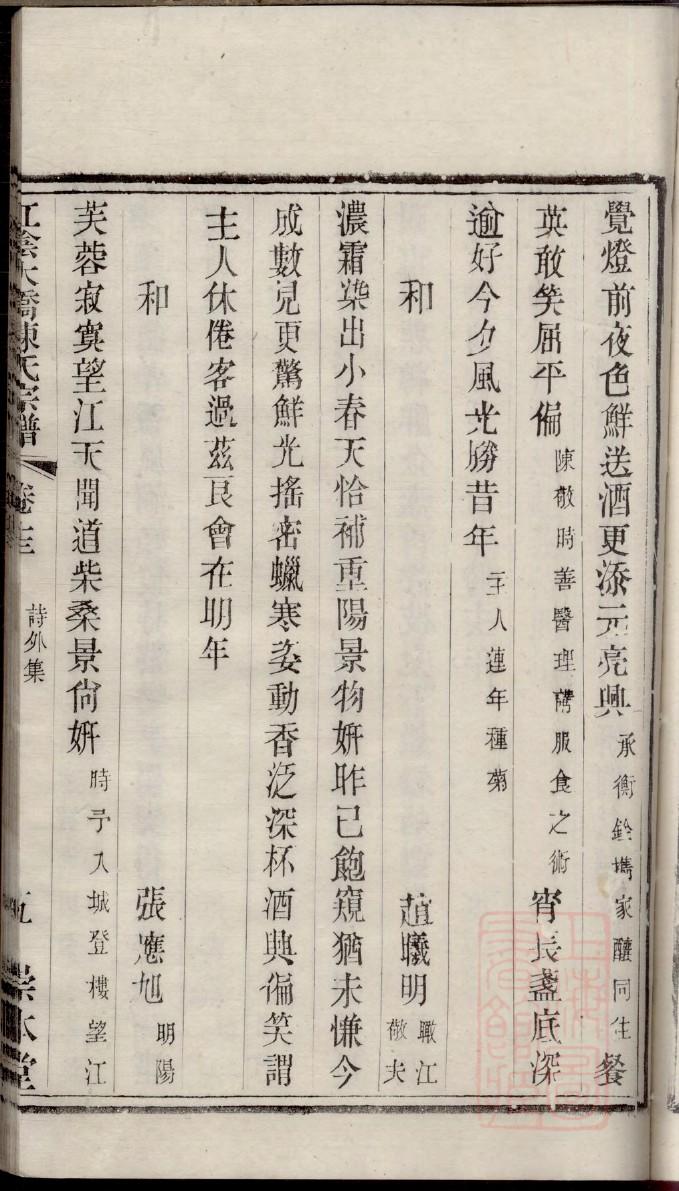 覺燈前夜色鮮送酒更添元亮興承衡銓擕家釀同生餐
英敢笑屈平偏陳敬時善醫理講服食之術宵長盞底深
逾好今夕風光勝昔年主人連年種菊
和 趙曦明瞰江敬夫
濃霜染出小春天恰補重陽景物妍昨已飽窺猶未慊今
成數見更驚鮮光搖密蠟寒姿動香泛深杯酒興偏笑謂
主人休倦客過茲良會在明年
和 張應旭明陽
芙蓉寂寞望江天聞道柴桑景尙妍時予入城登樓望江
江陰大橋陳氏宗譜 卷 詩外集 五 崇本堂